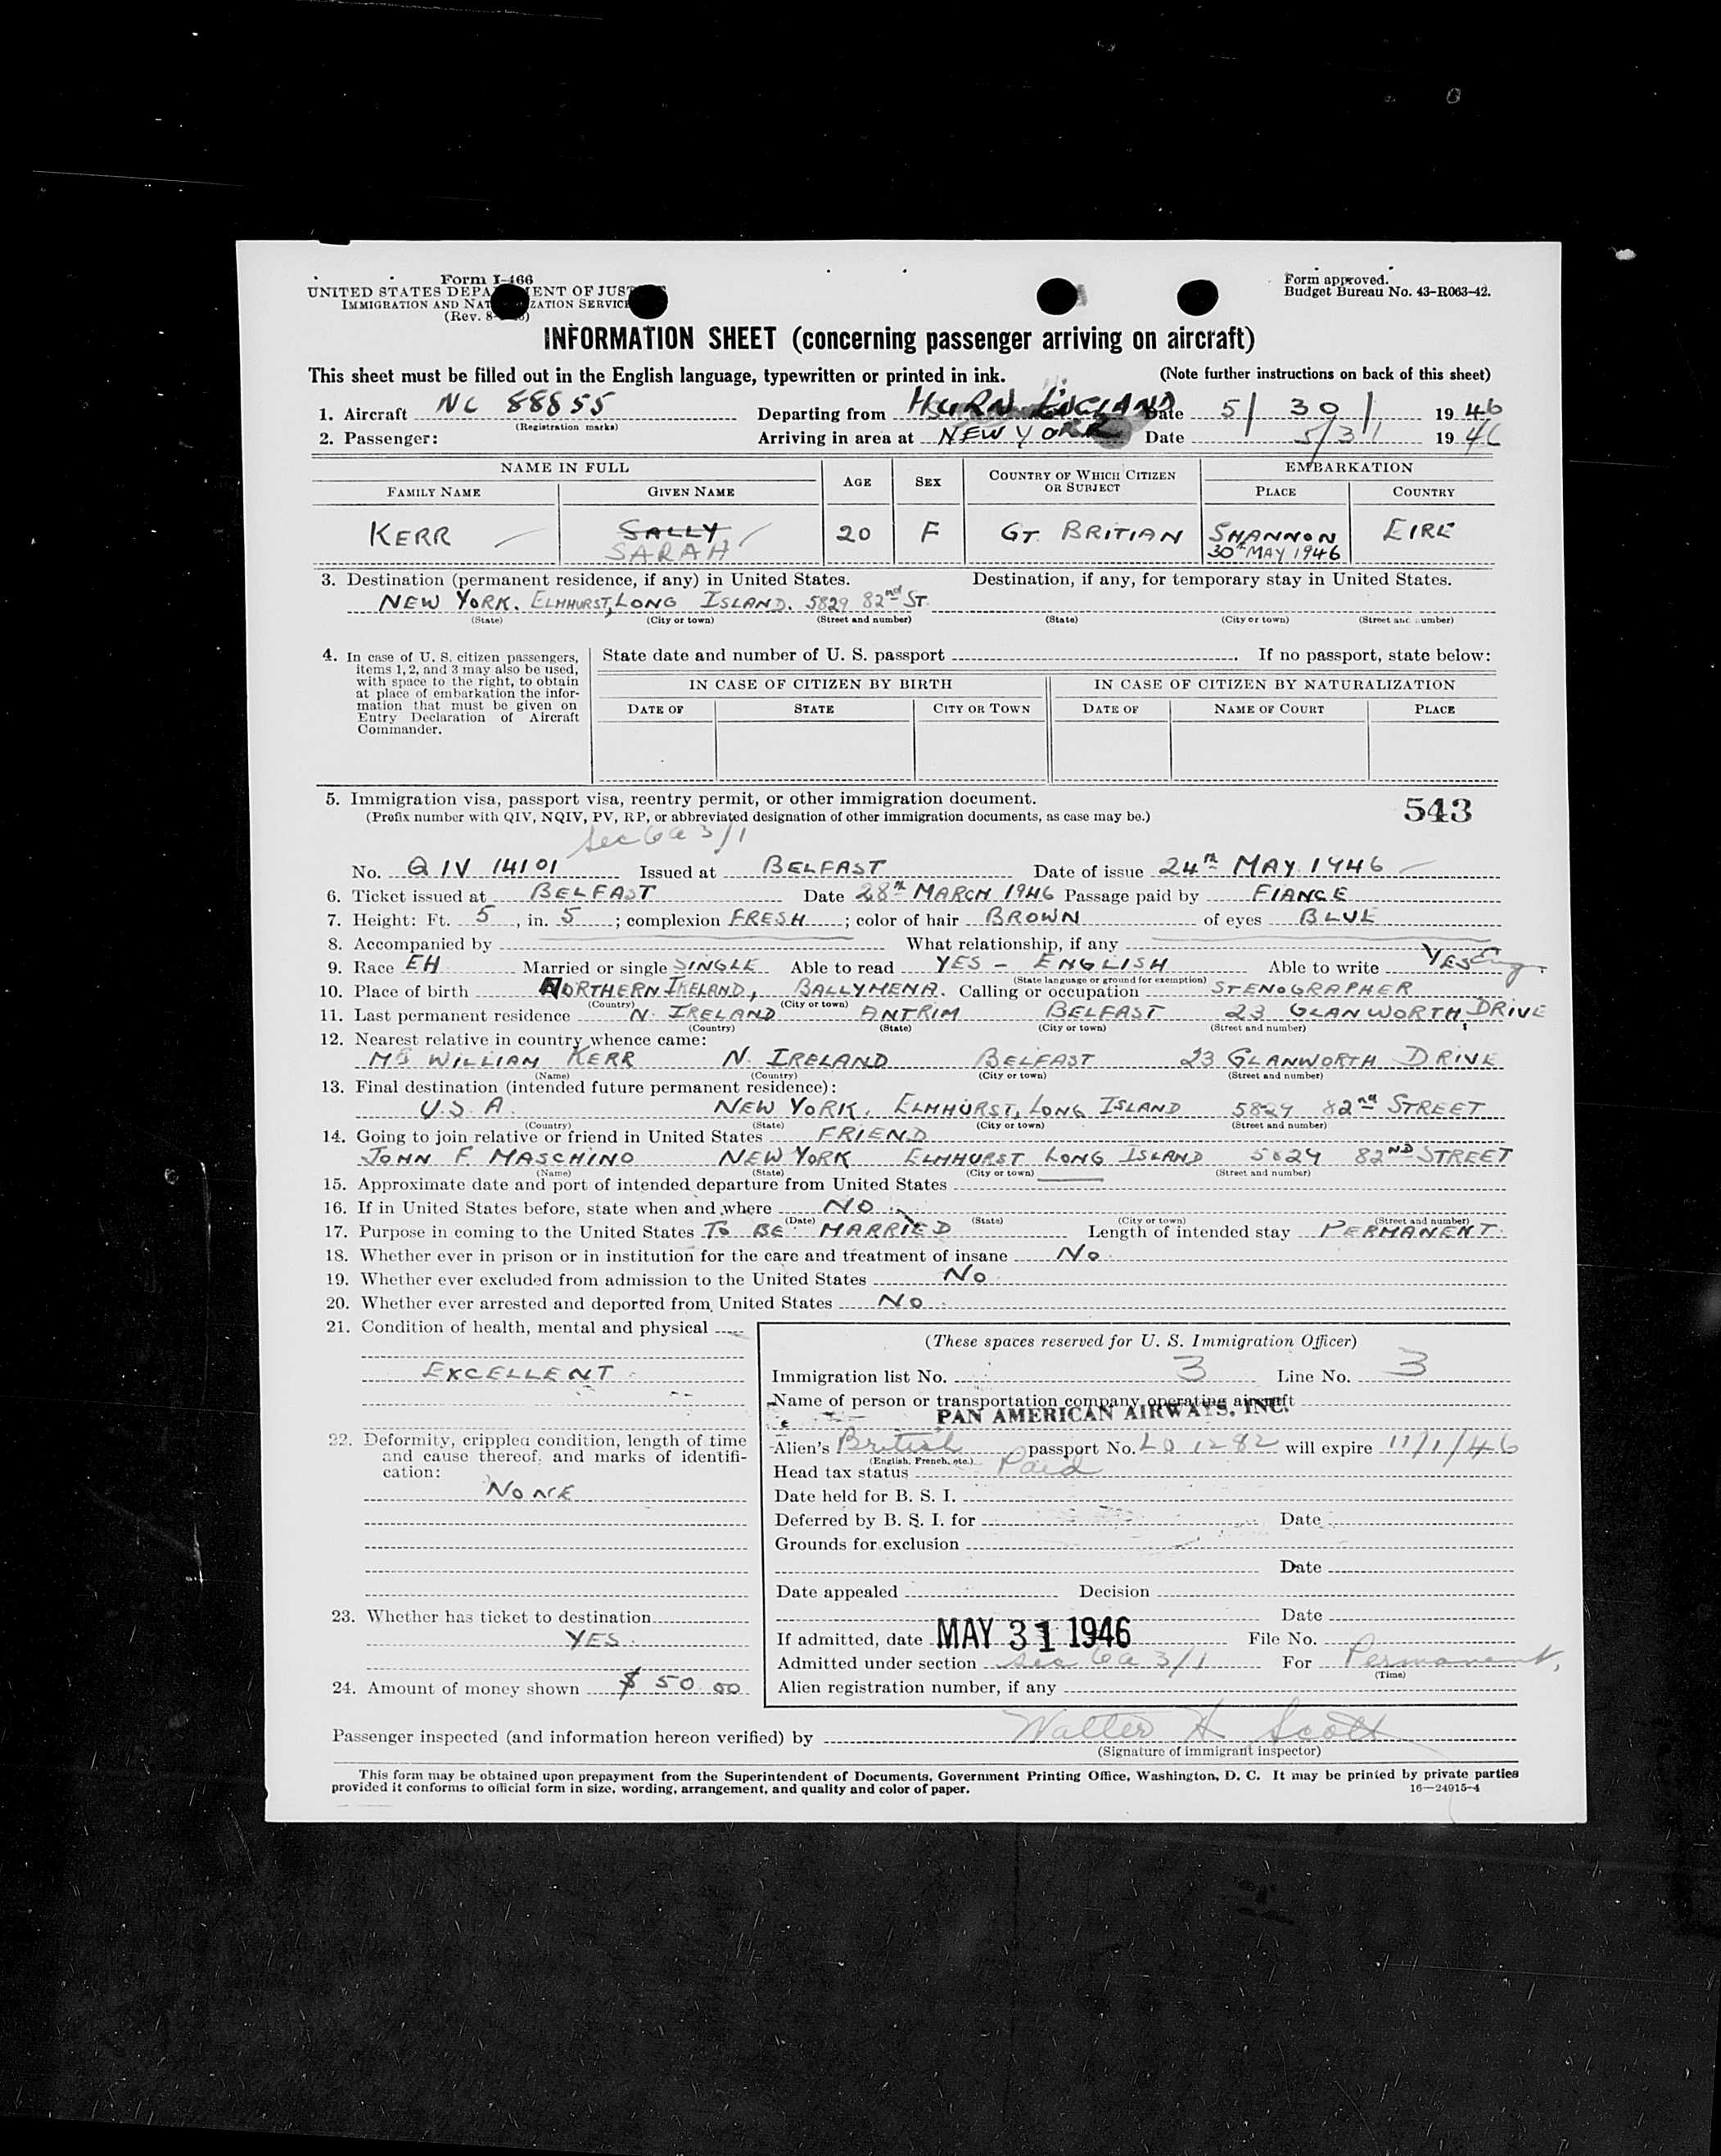 Form I-466
UNITED STATES DEPARTMENT OF JUSTICE
IMMIGRATION AND NATURALIZATION SERVICE
(Rev. 8-
Form approved.
Budget Bureau No. 43-R063-42.
INFORMATION SHEET (concerning passenger arriving on aircraft)
This sheet must be filled out in the English language, typewritten or printed in ink. (Note further instructions on back of this sheet)
1. Aircraft NC 88855 Departing from HURN ENGLAND Date 5/30/ 1946
(Registration marks)
2. Passenger: Arriving in area at NEW YORK Date 5/31 1946
NAME IN FULL AGE SEX COUNTRY OF WHICH CITIZEN OR SUBJECT EMBARKATION
FAMILY NAME GIVEN NAME PLACE COUNTRY
KERR SALLY 20 F GT. BRITIAN SHANNON EIRE
SARAH 30th MAY 1946
3. Destination (permanent residence, if any) in United States. Destination, if any, for temporary stay in United States.
NEW YORK. ELMHURST, LONG ISLAND. 5829 82nd ST.
(State) (City or town) (Street and number) (State) (City or town) (Street and number)
4. In case of U. S. citizen passengers, items 1, 2, and 3 may also be used, with space to the right, to obtain at place of embarkation the information that must be given on Entry Declaration of Aircraft Commander.
State date and number of U. S. passport If no passport, state below:
IN CASE OF CITIZEN BY BIRTH IN CASE OF CITIZEN BY NATURALIZATION
DATE OF STATE CITY OR TOWN DATE OF NAME OF COURT PLACE
5. Immigration visa, passport visa, reentry permit, or other immigration document. 543
(Prefix number with QIV, NQIV, PV, RP, or abbreviated designation of other immigration documents, as case may be.)
Sec 6a 3/1
No. QIV 14101 Issued at BELFAST Date of issue 24th MAY 1946
6. Ticket issued at BELFAST Date 28th MARCH 1946 Passage paid by FIANCE
7. Height: Ft. 5, in. 5; complexion FRESH; color of hair BROWN of eyes BLUE
8. Accompanied by What relationship, if any
9. Race EH Married or single SINGLE Able to read YES - ENGLISH Able to write YES Eng.
(State language or ground for exemption)
10. Place of birth NORTHERN IRELAND, BALLYMENA. Calling or occupation STENOGRAPHER
(Country) (City or town)
11. Last permanent residence N. IRELAND ANTRIM BELFAST 23 GLANWORTH DRIVE
(Country) (State) (City or town) (Street and number)
12. Nearest relative in country whence came:
WILLIAM KERR N. IRELAND BELFAST 23 GLANWORTH DRIVE
(Name) (Country) (City or town) (Street and number)
13. Final destination (intended future permanent residence):
U.S.A. NEW YORK. ELMHURST, LONG ISLAND 5829 82nd STREET
(Country) (State) (City or town) (Street and number)
14. Going to join relative or friend in United States FRIEND
JOHN F. MASCHINO NEW YORK ELMHURST LONG ISLAND 5829 82ND STREET
(Name) (State) (City or town) (Street and number)
15. Approximate date and port of intended departure from United States
16. If in United States before, state when and where NO.
(Date) (State) (City or town) (Street and number)
17. Purpose in coming to the United States TO BE MARRIED Length of intended stay PERMANENT.
18. Whether ever in prison or in institution for the care and treatment of insane NO.
19. Whether ever excluded from admission to the United States NO.
20. Whether ever arrested and deported from United States NO.
21. Condition of health, mental and physical
EXCELLENT
22. Deformity, crippled condition, length of time and cause thereof, and marks of identification:
NONE
23. Whether has ticket to destination
YES.
24. Amount of money shown $ 50.00
(These spaces reserved for U. S. Immigration Officer)
Immigration list No. 3 Line No. 3
Name of person or transportation company operating aircraft
PAN AMERICAN AIRWAYS, INC.
Alien's British passport No. LO 1282 will expire 11/1/46
(English, French, etc.)
Head tax status Paid
Date held for B. S. I.
Deferred by B. S. I. for Date
Grounds for exclusion
Date
Date appealed Decision
Date
If admitted, date MAY 31 1946 File No.
Admitted under section Sec 6a 3/1 For Permanent.
(Time)
Alien registration number, if any
Passenger inspected (and information hereon verified) by Walter H Scott
(Signature of immigrant inspector)
This form may be obtained upon prepayment from the Superintendent of Documents, Government Printing Office, Washington, D. C. It may be printed by private parties
provided it conforms to official form in size, wording, arrangement, and quality and color of paper. 16—24915-4